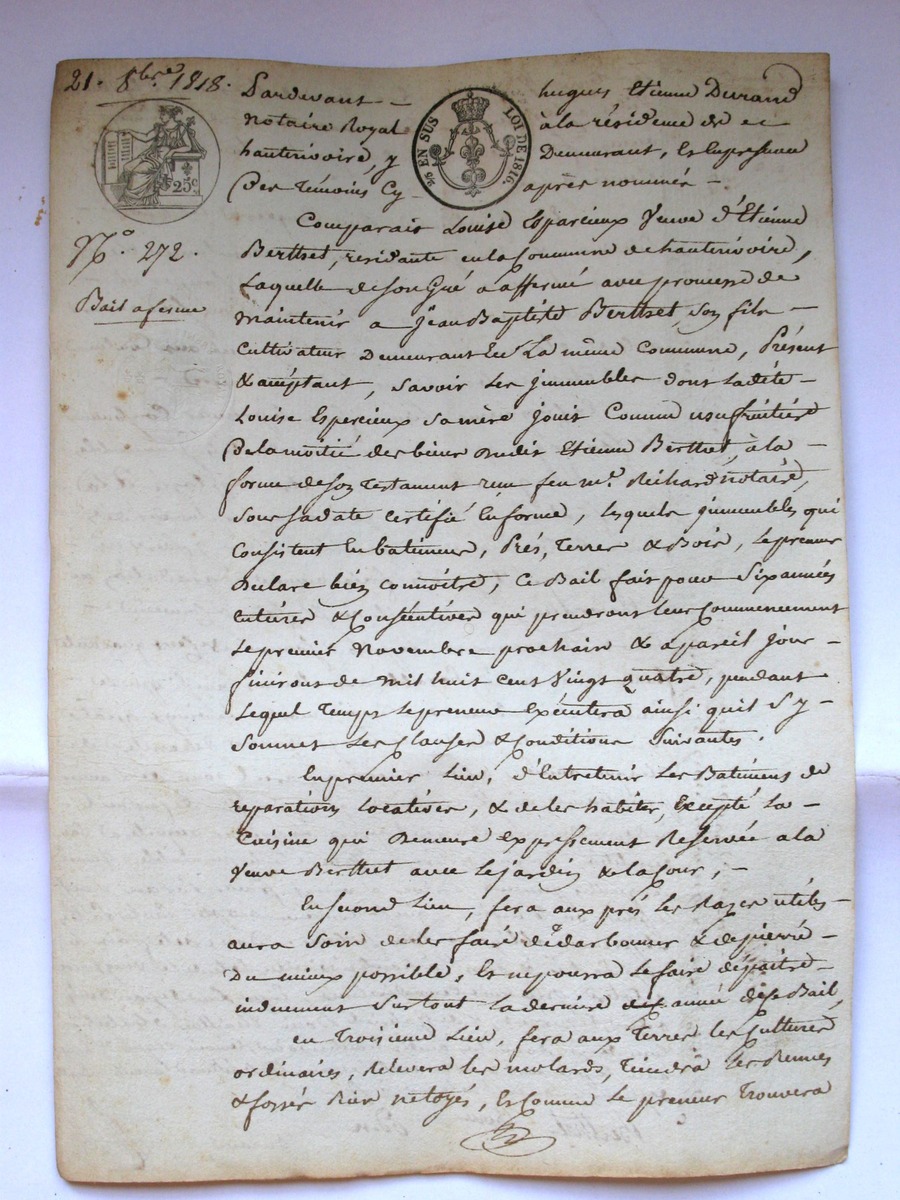 21. 8bre 1818.
25c
N.o 272.
Bail a ferme
¼ EN SUS LOI DE 1816.
Pardevant - hugues Etienne Durand
notaire Royal à la résidence de et
hauterivoire, y Demeurant, En la presence
Des Témoins Cy- après nommés -
Comparait Louise Esparcieux Veuve d'Etienne
Berthet, residante en la Commune de hauterivoire,
Laquelle de son Gré a affermé avec promesse de
maintenir a Jean Baptiste Berthet, son fils -
Cultivateur Demeurant En La même Commune, Présent
& acceptant, savoir Les immeubles dont Ladite -
Louise Esparcieux sa mère jouit Comme usufruitière
De la moitié des biens dudit Etienne Berthet, à la -
forme de son Testament reçu feu me. Richard notaire,
sous sa date certifié En forme, Lesquels immeubles qui
Consistent En batimens, Prés, Terres & Bois, Le preneur
Declare bien connoître, Ce Bail fait pour Six années
entières & Consécutives qui prendront leur Commencement
Le premier Novembre prochain & a pareil jour -
finiront de mil huit Cent Vingt quatre, pendant
Lequel Temps Le preneur Exécutera ainsi quil s'y -
Soumet Les Clauses & Conditions Suivantes.
En premier Lieu, d'Entretenir Les Batimens de
reparations Locatives, & de les habiter, Excepté La -
Cuisine qui Demeure Expressement Reservée a la
Veuve Berthet avec Le jardin & la Cour, -
En second Lieu, fera aux prés Les Razes utiles -
aura Soin de les faire dedarbonner & depierrer -
Du mieux possible, Et ne pourra Le faire dépaitre -
induement Surtout La derniere année de ce Bail,
en Troisieme Lieu, fera aux Terres les Cultures
ordinaires, Relevera les molards, Tiendra les
& fossés Bien netoyés, Et Comme Le preneur Trouvera